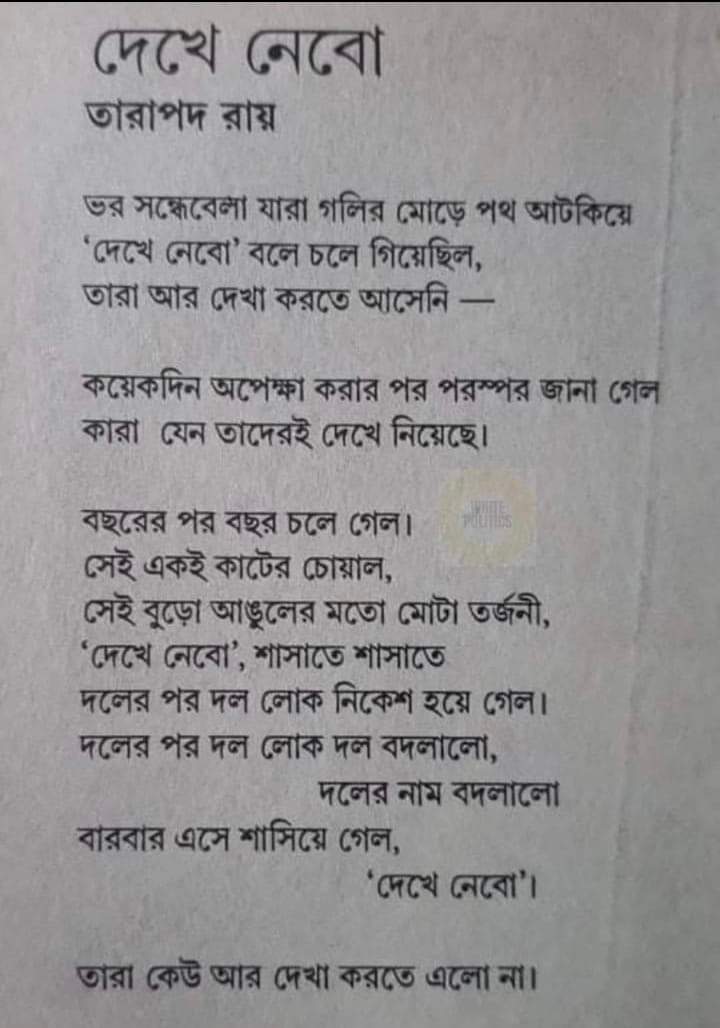 দেখে নেবো
তারাপদ রায়
ভর সন্ধেবেলা যারা গলির মোড়ে পথ আটকিয়ে
‘দেখে নেবো’ বলে চলে গিয়েছিল,
তারা আর দেখা করতে আসেনি —
কয়েকদিন অপেক্ষা করার পর পরস্পর জানা গেল
কারা যেন তাদেরই দেখে নিয়েছে।
বছরের পর বছর চলে গেল।
WHITE
POLITICS
সেই একই কাটের চোয়াল,
সেই বুড়ো আঙুলের মতো মোটা তর্জনী,
‘দেখে নেবো’, শাসাতে শাসাতে
দলের পর দল লোক নিকেশ হয়ে গেল।
দলের পর দল লোক দল বদলালো,
দলের নাম বদলালো
বারবার এসে শাসিয়ে গেল,
‘দেখে নেবো’।
তারা কেউ আর দেখা করতে এলো না।